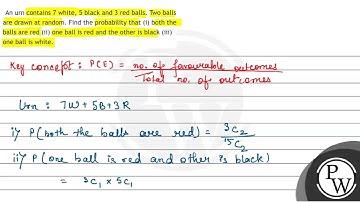 An urn contains 7 white, 5 black and 3 red balls. Two balls
are drawn at random. Find the probability that (i) both the
balls are red (ii) one ball is red and the other is black (iii)
one ball is white.
Key concept : P(E) = no. of favourable outcomes
Total no. of outcomes
Urn : 7W + 5B + 3R
i) P(both the balls are red) = ³C₂
¹⁵C₂
ii) P(one ball is red and other is black)
= ³C₁ × ⁵C₁
P
W